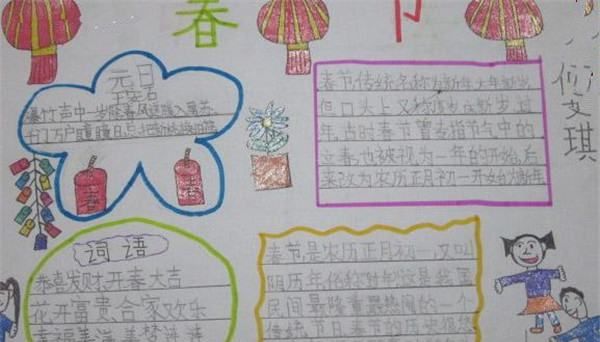 春 节
元日
王安石
爆竹声中一岁除春风送暖入屠苏
千门万户曈曈日总把新桃换旧符
春节传统名称为新年大年新岁
但口头上又称度岁庆新岁过
年古时春节曾专指节气中的
立春也被视为一年的开始后
来改为农历正月初一开始为新年
艾琪
春
词语
恭喜发财开春大吉
花开富贵合家欢乐
幸福美满
春节是农历正月初一又叫
阴历年俗称过年这是我国
民间最隆重最热闹的一个
传统节日春节的历史很悠